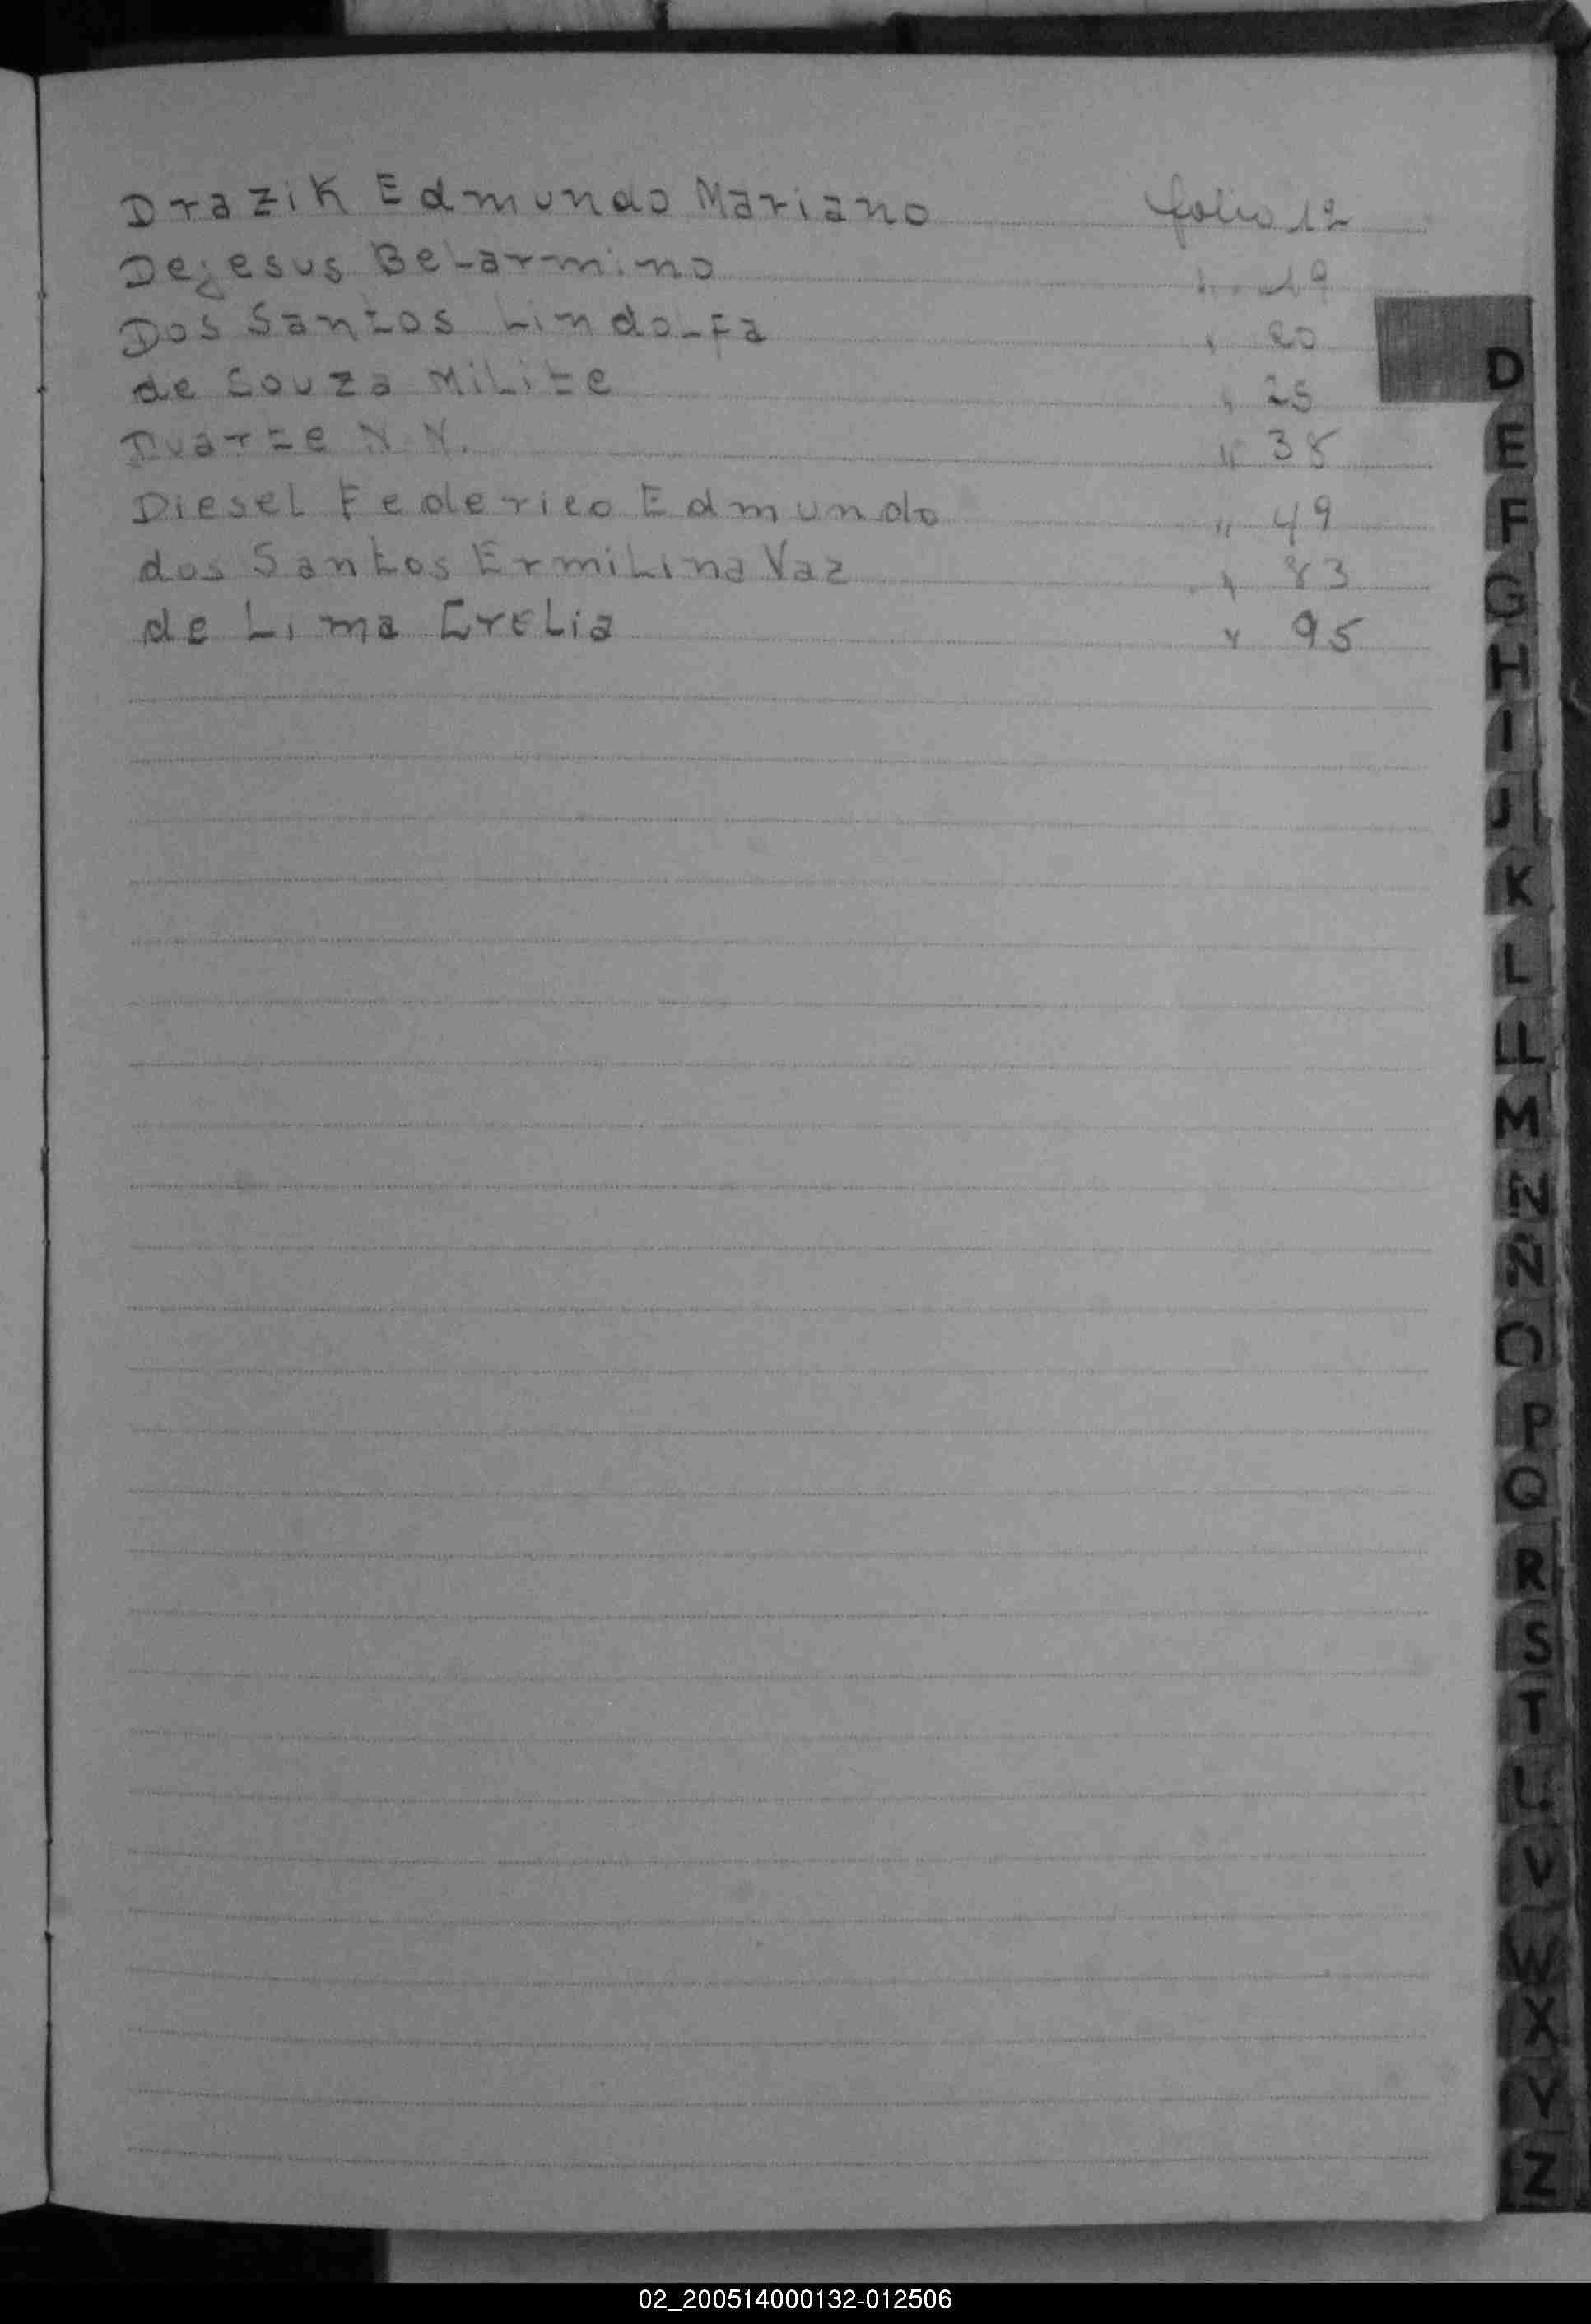 Drazik Edmundo Mariano folio 12
Dejesus Belarmino " 19
Dos Santos Lindolfa " 20
de Souza Milite " 25
Duarte N N. " 38
Diesel Federico Edmundo " 49
dos Santos Ermilina Vaz " 83
de Lima " 95
D
E
F
G
H
I
J
K
L
LL
M
N
Ñ
O
P
Q
R
S
T
U
V
W
X
Y
Z
02_200514000132-012506